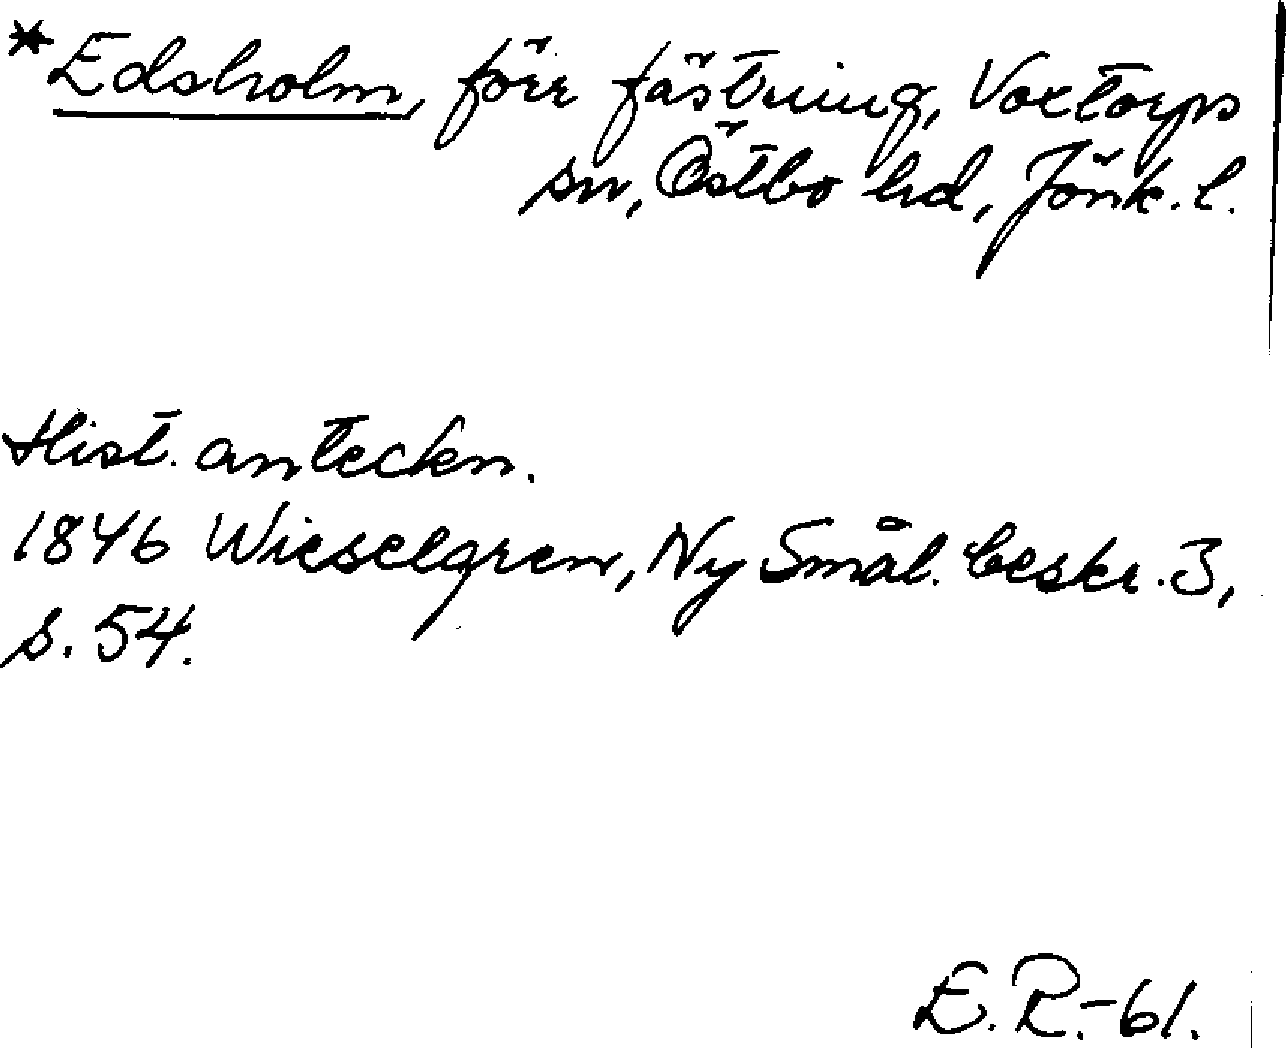 *Edsholm, förr fästning, Voxtorps
sn, Östbo hd, Jönk. l.
Hist. anteckn.
1846 Wieselgren, Ny Smål. beskr. 3,
s. 54.
E. R.-61.